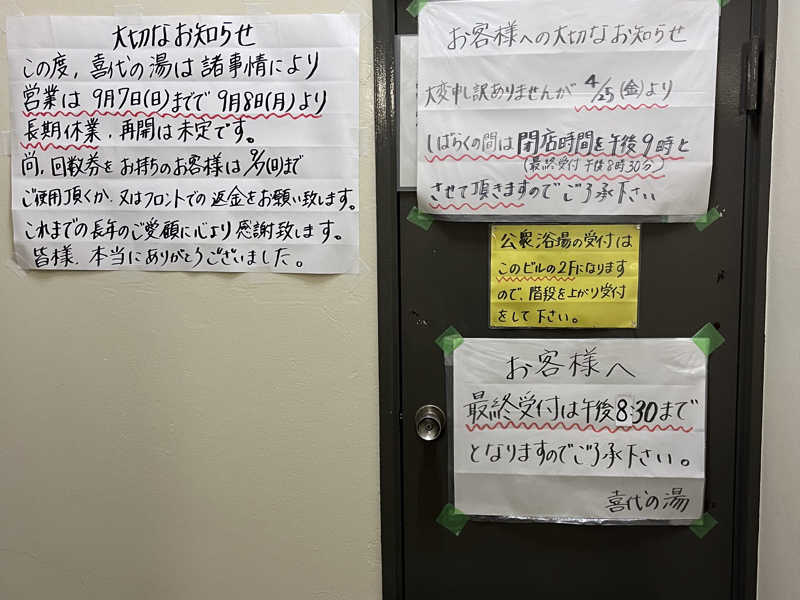 大切なお知らせ
この度、喜代の湯は諸事情により
営業は9月7日(日)までで9月8日(月)より
長期休業、再開は未定です。
尚、回数券をお持ちのお客様は9/7(日)まで
ご使用頂くか、又はフロントでの返金をお願い致します。
これまでの長年のご愛顧に心より感謝致します。
皆様、本当にありがとうございました。
お客様への大切なお知らせ
大変申し訳ありませんが4/25(金)より
しばらくの間は閉店時間を午後9時と
(最終受付午後8時30分)
させて頂きますのでご了承下さい
公衆浴場の受付は
このビルの2Fになります
ので、階段を上がり受付
をして下さい。
お客様へ
最終受付は午後8:30まで
となりますのでご了承下さい。
喜代の湯